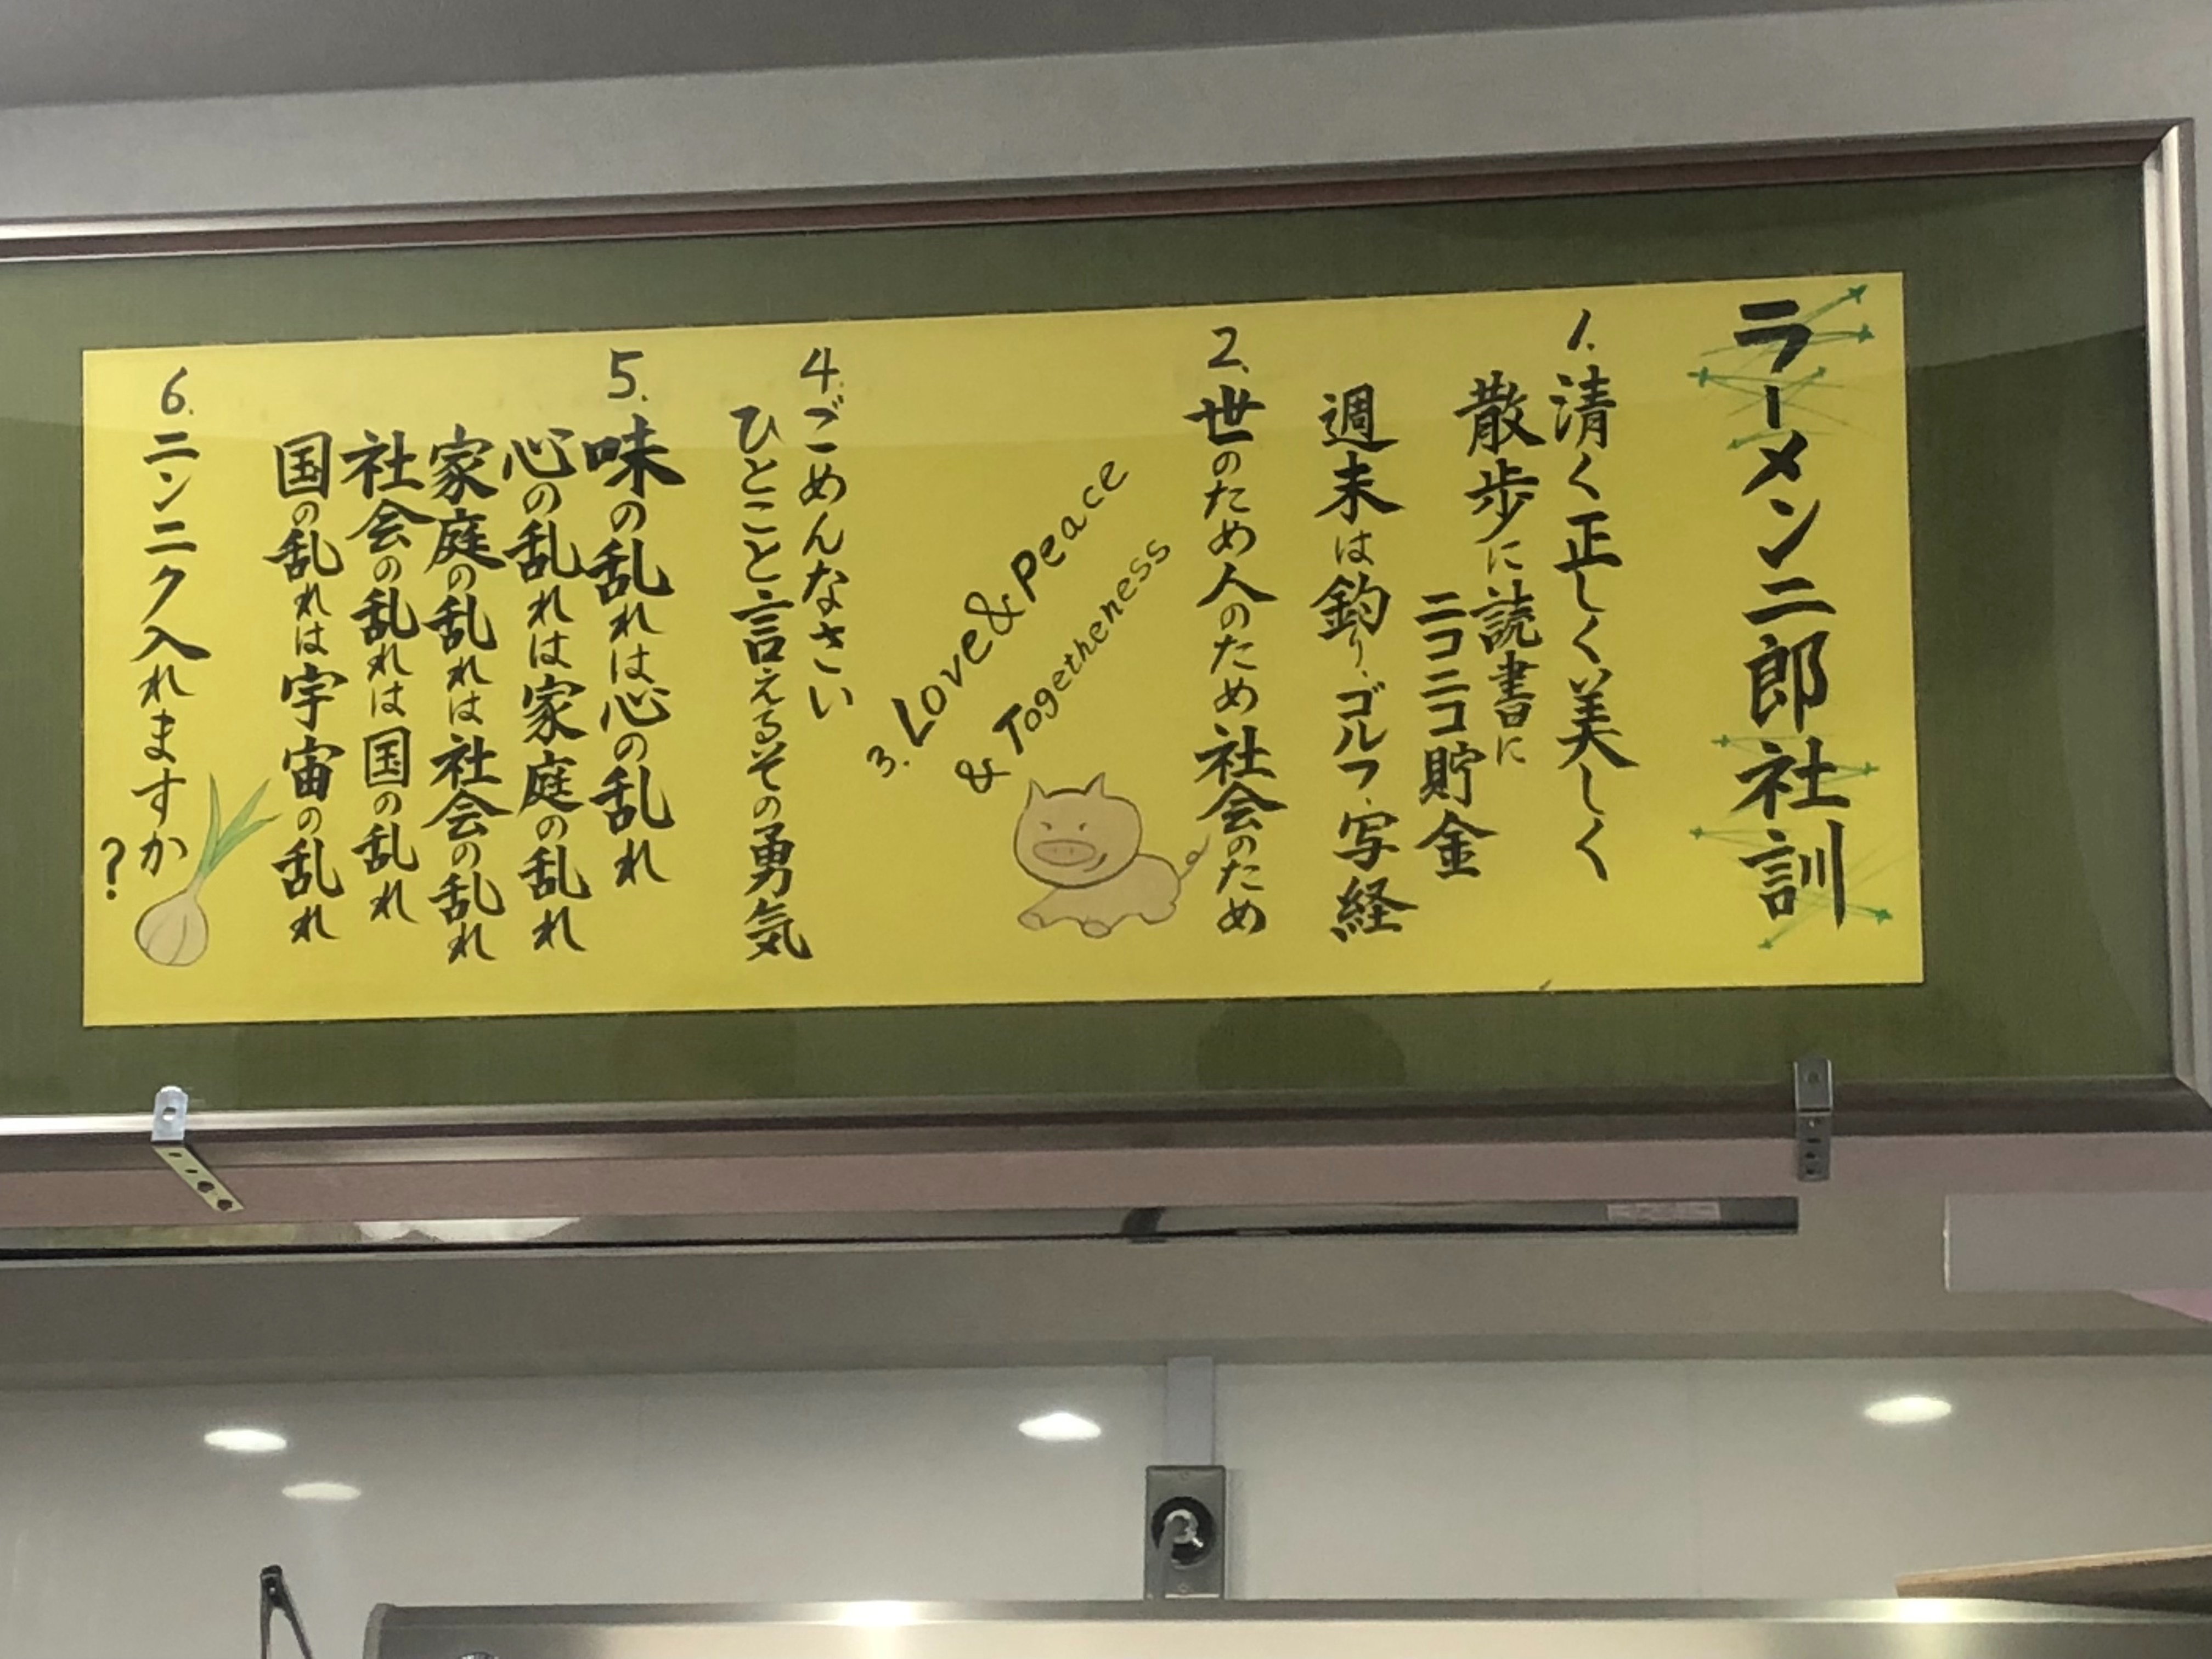 ラーメン二郎社訓
1. 清く正しく美しく
散歩に読書に
ニコニコ貯金
週末は釣り、ゴルフ、写経
2. 世のため人のため社会のため
3. Love & Peace
& Togetheness
4. ごめんなさい
ひとこと言えるその勇気
5. 味の乱れは心の乱れ
心の乱れは家庭の乱れ
家庭の乱れは社会の乱れ
社会の乱れは国の乱れ
国の乱れは宇宙の乱れ
6. ニンニク入れますか
?